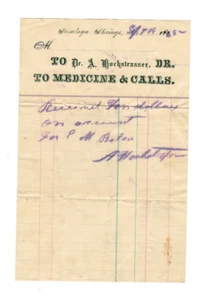 Saratoga Springs, Sept 19 1885
M
TO Dr. A. Hochstrasser, DR.
TO MEDICINE & CALLS.
Received Ten dollars
on account
For P M
A Hochstrasser